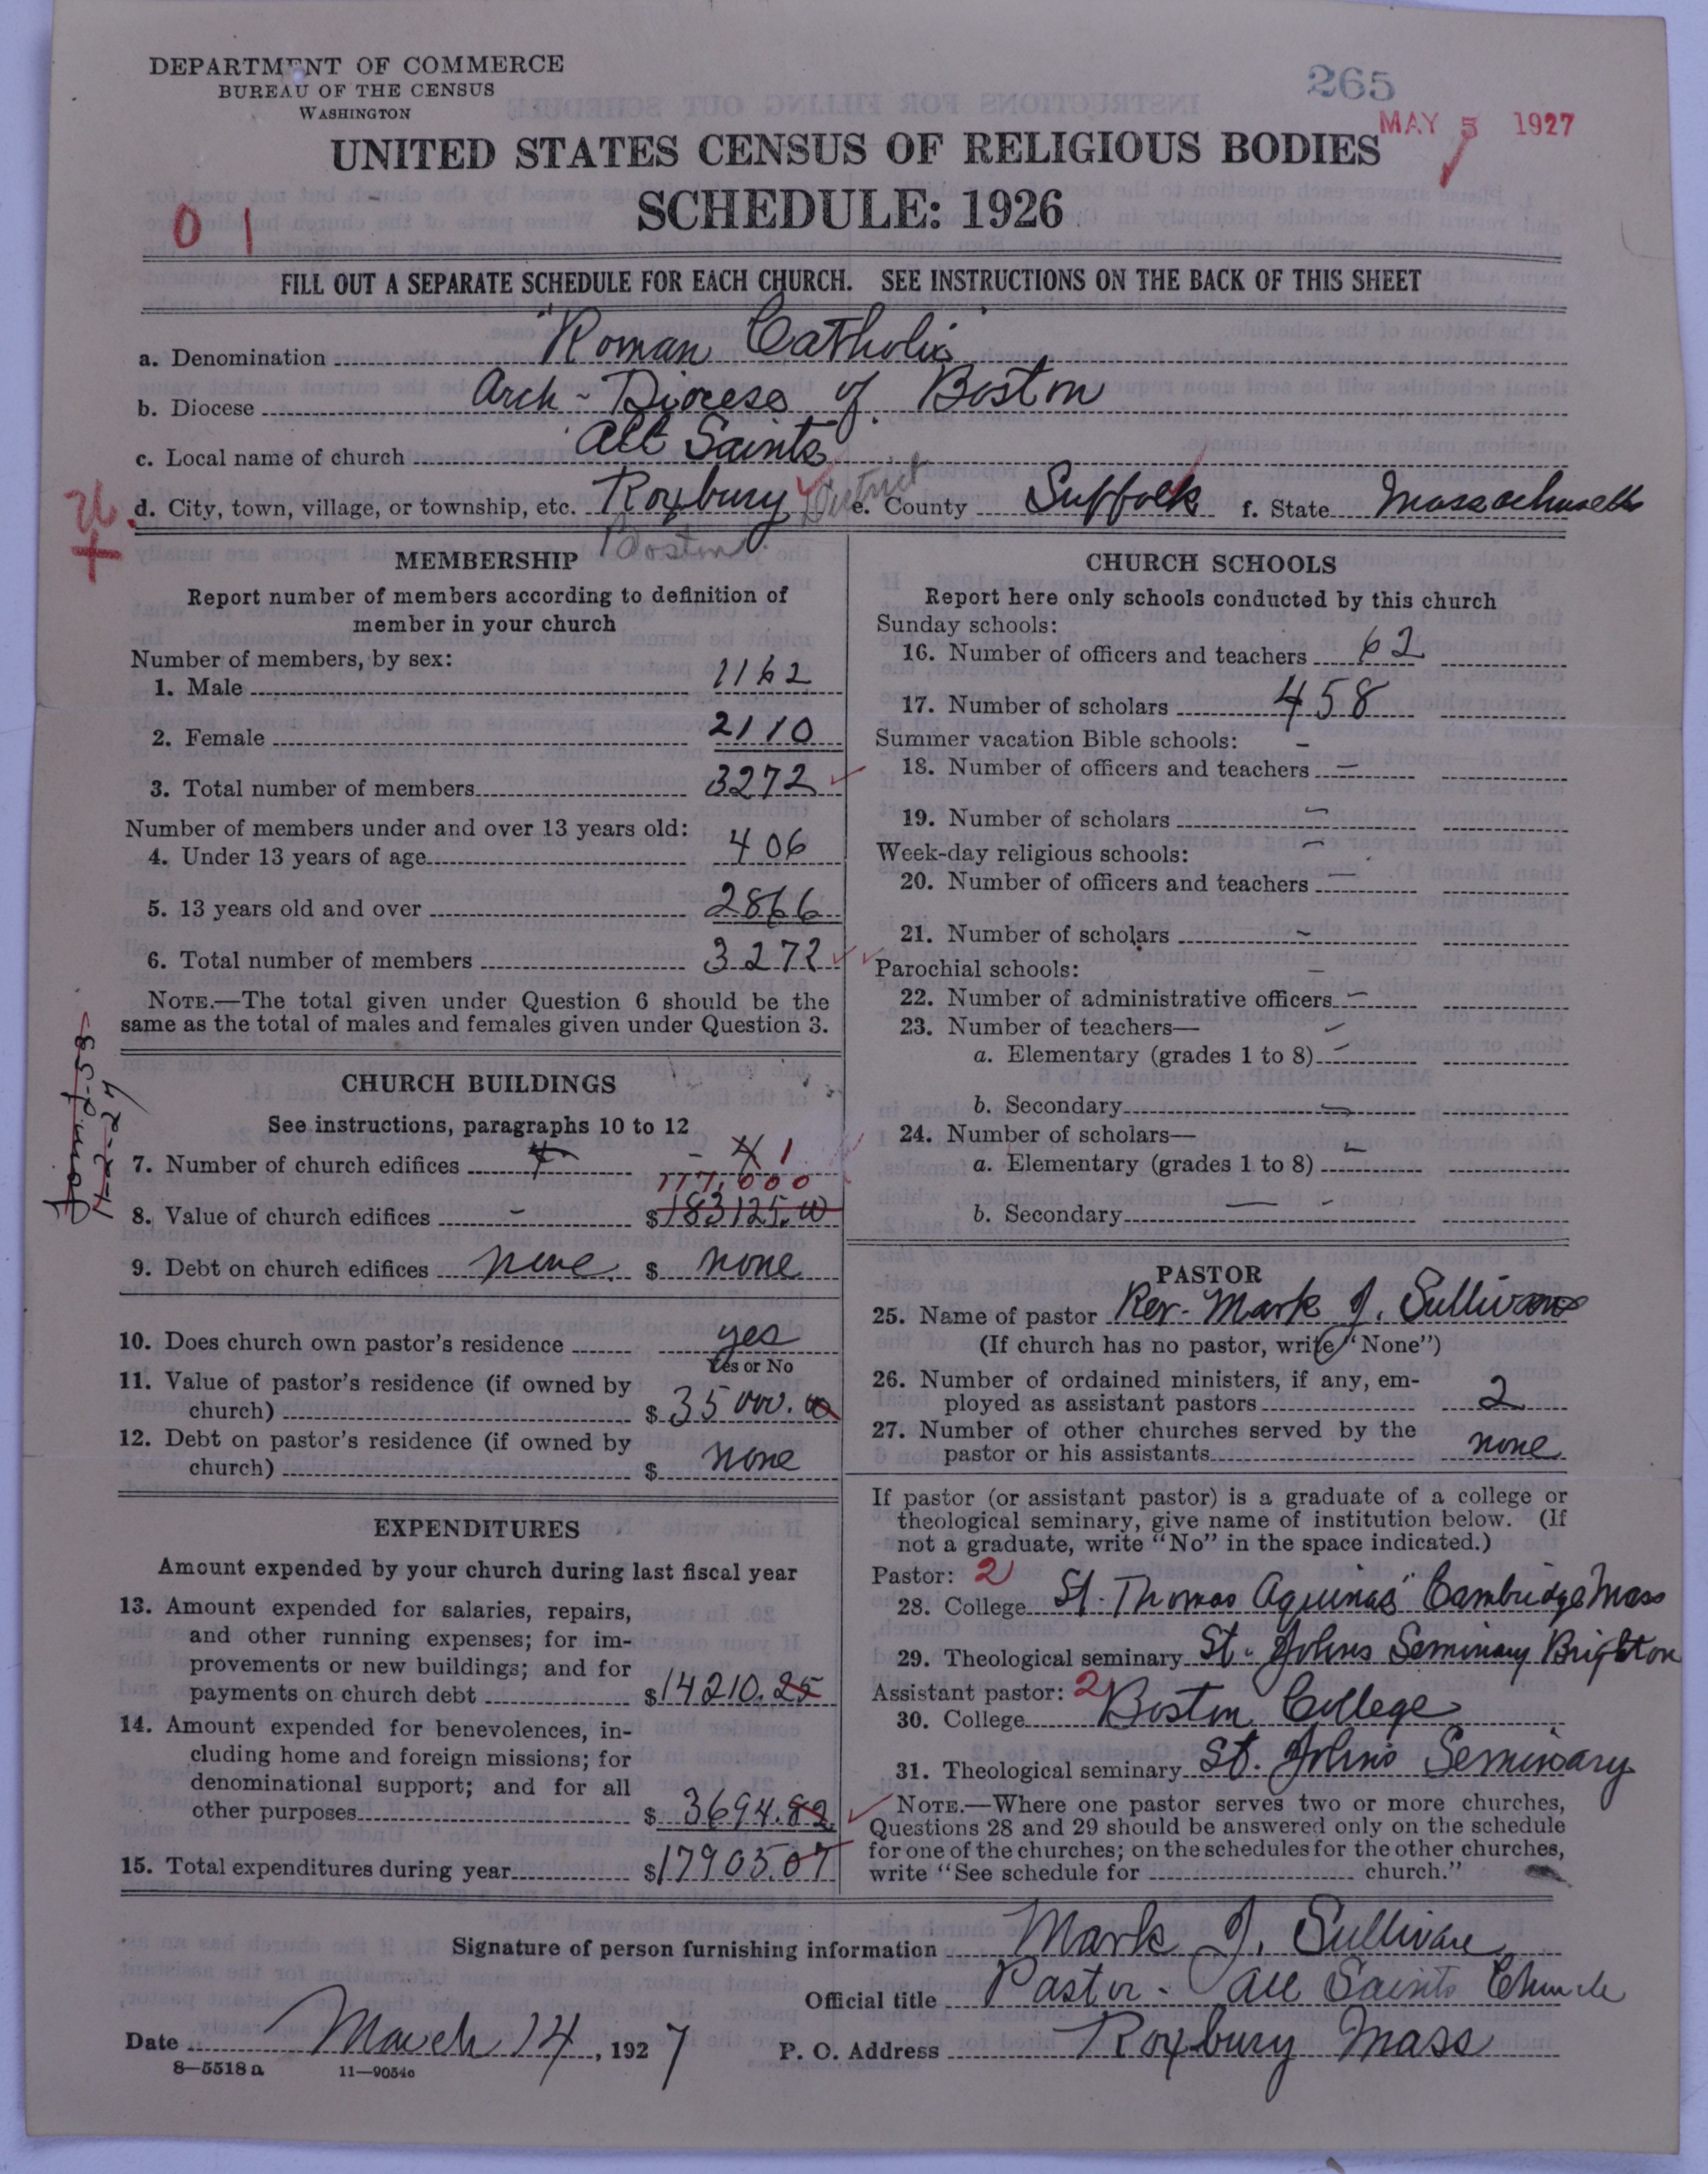 DEPARTMENT OF COMMERCE
BUREAU OF THE CENSUS
WASHINGTON
265
MAY 5 1927
UNITED STATES CENSUS OF RELIGIOUS BODIES
SCHEDULE: 1926
0 1
FILL OUT A SEPARATE SCHEDULE FOR EACH CHURCH. SEE INSTRUCTIONS ON THE BACK OF THIS SHEET
a. Denomination "Roman Catholic"
b. Diocese Arch-Diocese of Boston
c. Local name of church All Saints
d. City, town, village, or township, etc. Roxbury District e. County Suffolk f. State Massachusetts
Boston
MEMBERSHIP
Report number of members according to definition of
member in your church
Number of members, by sex:
1. Male 1162
2. Female 2110
3. Total number of members 3272
Number of members under and over 13 years old:
4. Under 13 years of age 406
5. 13 years old and over 2866
6. Total number of members 3272
NOTE.—The total given under Question 6 should be the
same as the total of males and females given under Question 3.
CHURCH BUILDINGS
See instructions, paragraphs 10 to 12
7. Number of church edifices 4 4 1
777,000
8. Value of church edifices - $183125.00
9. Debt on church edifices none $ none
10. Does church own pastor's residence yes
Yes or No
11. Value of pastor's residence (if owned by
church) $35000.00
12. Debt on pastor's residence (if owned by
church) $ none
EXPENDITURES
Amount expended by your church during last fiscal year
13. Amount expended for salaries, repairs,
and other running expenses; for im-
provements or new buildings; and for
payments on church debt $14210.25
14. Amount expended for benevolences, in-
cluding home and foreign missions; for
denominational support; and for all
other purposes $3694.82
15. Total expenditures during year $17905.07
CHURCH SCHOOLS
Report here only schools conducted by this church
Sunday schools:
16. Number of officers and teachers 62
17. Number of scholars 458
Summer vacation Bible schools: -
18. Number of officers and teachers -
19. Number of scholars -
Week-day religious schools: -
20. Number of officers and teachers -
21. Number of scholars -
Parochial schools: -
22. Number of administrative officers -
23. Number of teachers— -
a. Elementary (grades 1 to 8) -
b. Secondary -
24. Number of scholars—
a. Elementary (grades 1 to 8) -
b. Secondary -
PASTOR
25. Name of pastor Rev. Mark J. Sullivan
(If church has no pastor, write "None")
26. Number of ordained ministers, if any, em-
ployed as assistant pastors 2
27. Number of other churches served by the
pastor or his assistants none
If pastor (or assistant pastor) is a graduate of a college or
theological seminary, give name of institution below. (If
not a graduate, write "No" in the space indicated.)
Pastor: 2
28. College St. Thomas Aquinas" Cambridge Mass
29. Theological seminary St. Johns Seminary Brighton
Assistant pastor: 2
30. College Boston College
31. Theological seminary St. Johns Seminary
NOTE.—Where one pastor serves two or more churches,
Questions 28 and 29 should be answered only on the schedule
for one of the churches; on the schedules for the other churches,
write "See schedule for church."
Signature of person furnishing information Mark J. Sullivan
Official title Pastor - All Saints Church
Date March 14, 1927 P. O. Address Roxbury Mass
8—5518a 11—9054c